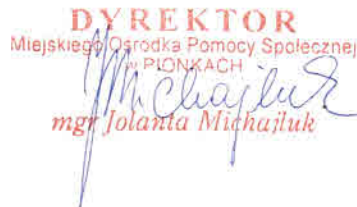 DYREKTOR
Miejskiego Ośrodka Pomocy Społecznej
w PIONKACH
Michajluk
mgr Jolanta Michajluk